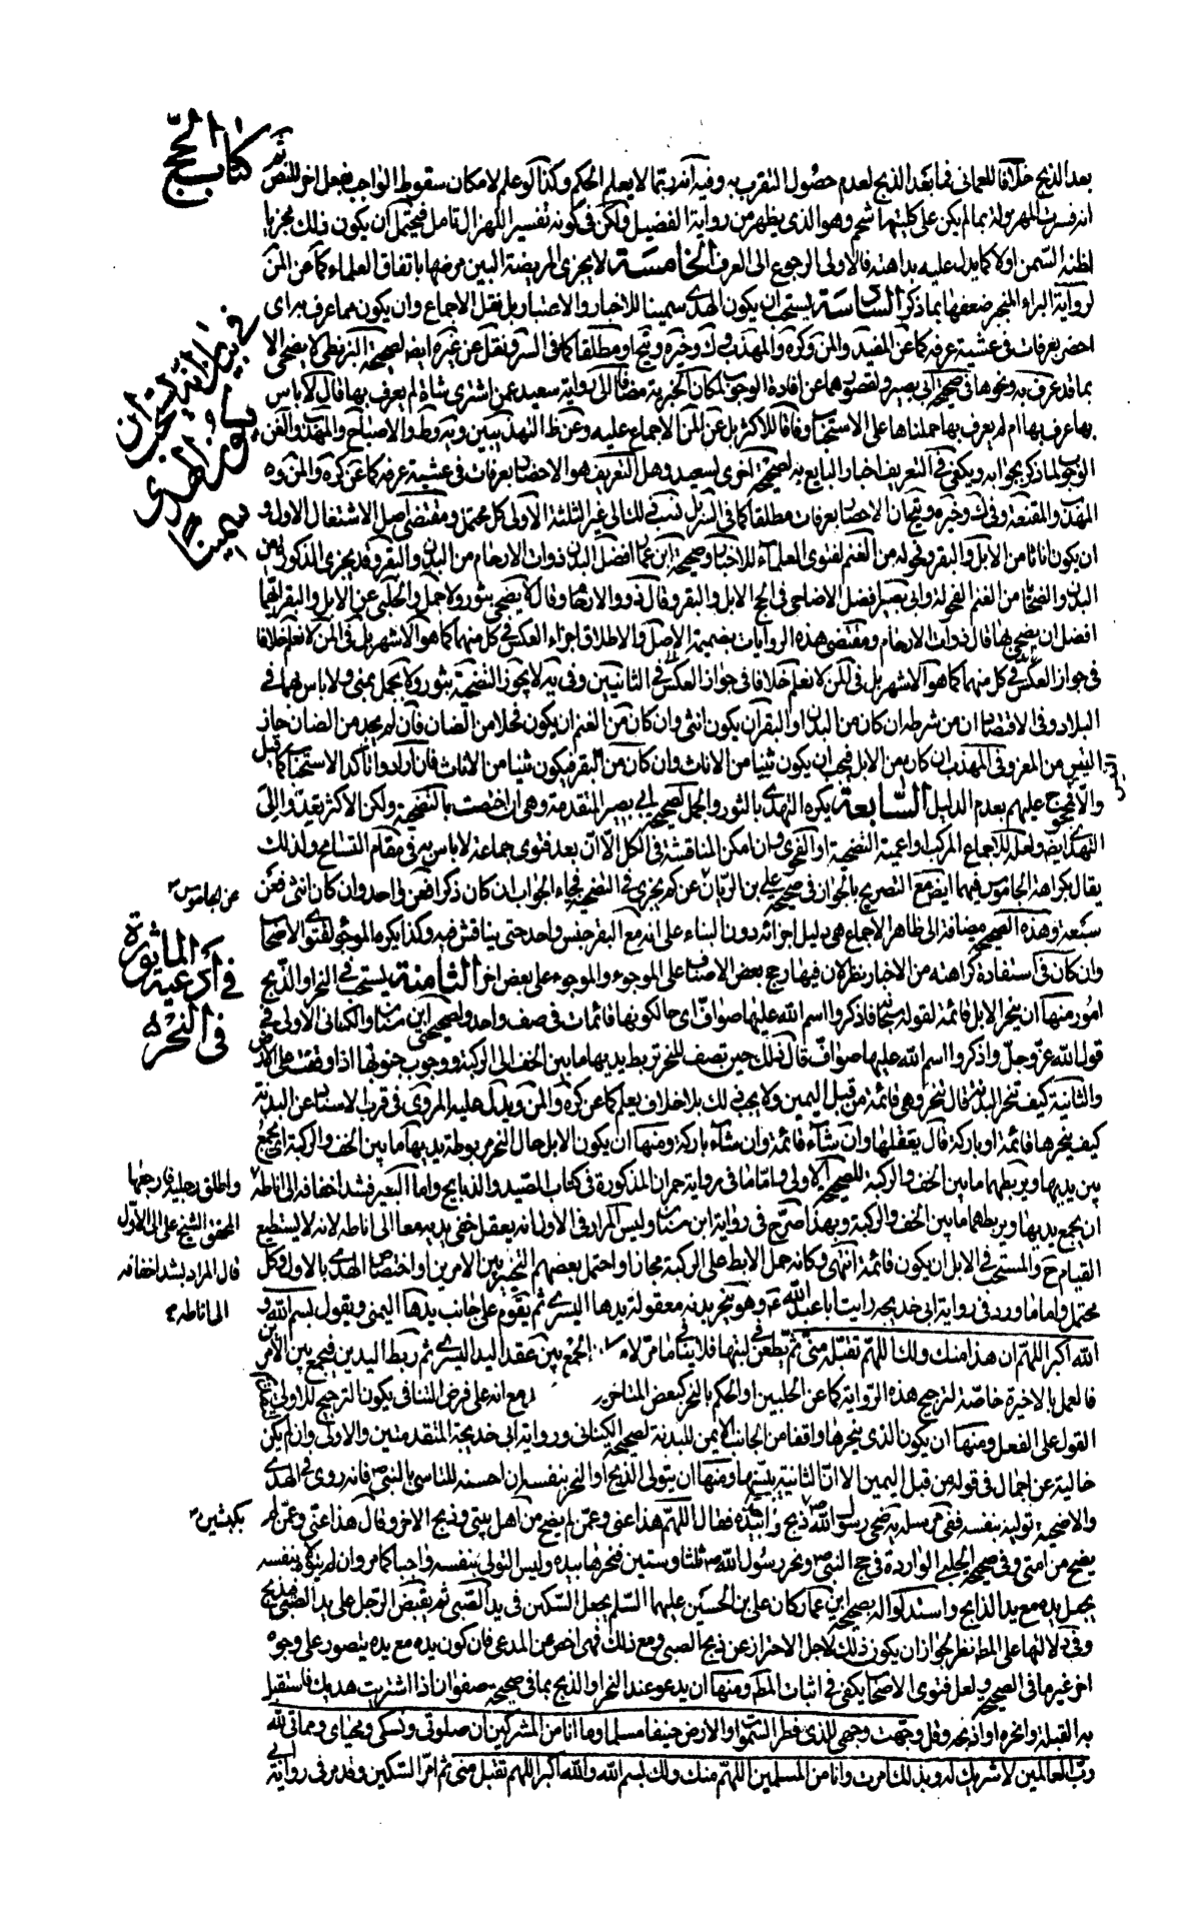 كتاب الحجّ
بعد الذبح خلافا للعماني فما بعد الذبح لعدم حصول التقرب به وفيه انه ربما لا يعلم الحكم وكذا لو علم لامكان سقوط الواجب بفعل اخر للنص ثم
انه فسرت المهزولة بما لم يكن على كليتها شحم وهو الذي يظهر من رواية الفضيل ولكن في كونه تفسير اللهزال تامل فيحتمل ان يكون ذلك مجزيا
لظنه السّمن اولا كما يدل عليه بداهته فالاولى الرجوع الى العرف الخامسة لا يجزي المريضة البين مرضها باتفاق العلماء كما عن المن
لرواية البراء المنجبر ضعفها بما ذكر السادسة يستحب ان يكون الهدي سمينا للاخبار والاعتبار بل نقل الاجماع وان يكون مما عرف به اي
احضر بعرفات في عشية عرفة كما عن المفيد والمن وكره والمهذب وك وخيره ويج او مطلقا كما في السر ونقل عن غيره ايضا لصحيحة البزنطي لا يضحى الا
بما قد عرف به ونحوها في صحيحة ابي بصير ولقصورهما عن افادة الوجوب لمكان الخبرية مضافا الى رواية سعيد عمن اشترى شاة لم يعرف بها قال لا باس
بها عرف بها ام لم يعرف بها حملناها على الاستحباب وفاقا للاكثر بل عن المن الاجماع عليه وعن ظ التهذيبين ويه وط والاصباح والمهذب والغنية
الوجوب لما ذكر بجوابه ويكفي في التعريف اخبار البايع به لصحيحة اخرى لسعيد وهل التعريف هو الاحضار بعرفات في عشية عرفة كما عن كره والمن وه
المهذب والمقنعة وفي ك وخيره ويج ان الاحضار بعرفات مطلقا كما في السر بل نسب في ذلك الى غير الثلثة الاولى كل محتمل ومقتضى اصل الاشتغال الاول و
ان يكون اناثا من الابل والبقر وفحولة من الغنم لفتوى العلماء للاخبار وصحيحة ابن عمار افضل البدن ذوات الارحام من البدن والبقر وقد يجزي الذكورة من
البدن والضحايا من الغنم الفحولة وابي بصير افضل الاضاحي في الحج الابل والبقر وقال ذوو الارحام وقال لا يضحى بثور ولا جمل والحلبي عن الابل والبقر ايهما
افضل ان يضحى بها قال ذوات الارحام ومقتضى هذه الروايات بضميمة الاصل والاطلاق اجزاء العكس في كل منهما كما هو الاشهر بل في المن لا نعلم خلافا
في جواز العكس في كل منهما كما هو الاشهر بل في المن لا نعلم خلافا في جواز العكس في الثانيين وفي يه لا يجوز التضحية بثور ولا بجمل بمنى ولا باس بهما في
البلاد وفي الاقتصاد ان من شرطه ان كان من البدن او البقر ان يكون انثى وان كان من الغنم ان يكون فحلا من الضان فان لم يجد من الضان جاز
التيس من المعز وفي المهذب ان كان من الابل فيجب ان يكون ثنيا من الاناث وان كان من البقر فيكون ثنيا من الاناث فان ارادوا تاكد الاستحباب كما قيل
والا فمحجوج عليهم بعدم الدليل السّابعة يكره التهدي بالثور والجمل لصحيحة ابي بصير المتقدمة وهي ان اختصت بالتضحية ولكن الاكثر بعدوا الى
التهدي ايضا ولعله للاجماع المركب او اعمية التضحية او الفحوى وان امكن المناقشة في الكل الا ان بعد فتوى جماعة لا باس به في مقام التسامح ولذلك
يقال بكراهة الجاموس فيهما ايضا مع التصريح بالجواز في صحيحة علي بن الريان عن كم يجزي في التضحية فجاء الجواب ان كان ذكرا فعن واحد وان كان انثى فعن
سبعة وهذه الصحيحة مضافة الى ظاهر الاجماع هي دليل اجزائه دون البناء على انه مع البقر جنس واحد حتى يناقش فيه وكذا يكره الموجوء لفتوى الاصحاب
وان كان في استفادة كراهته من الاخبار نظر لان فيها رجح بعض الاصناف على الموجوء والموجوء على بعض اخر الثامنة يستحب في النحر والذبح
امور منها ان ينحر الابل قائمة لقوله سبحانه فاذكروا اسم الله عليها صوافّ اي حالكونها قائمات في صف واحد ولصحيحتي ابن سنان والكناني الاولى في
قول الله عزّ وجلّ واذكروا اسم الله عليها صوافّ قال ذلك حين تصف للنحر تربط يديها ما بين الخف الى الركبة ووجوب جنوبها اذا وقعت على الارض
والثانية كيف تنحر البدنة قال تنحر وهي قائمة من قبل اليمين ولا يجب ذلك بلا خلاف يعلم كما عن كره والمن ويدل عليه المروي في قرب الاسناد عن البدنة
كيف ينحرها قائمة او باركة قال يعقلها وان شاء قائمة وان شاء باركة ومنها ان يكون الابل حال النحر مربوطة يديها ما بين الخف والركبة اي يجمع
بين يديها ويربطهما ما بين الخف والركبة للصحيحة الاولى واما ما في رواية حمران المذكورة في كتاب الصيد والذبايح واما البعير فشد اخفافه الى اباطه
ان يجمع يديها ويربطهما ما بين الخف والركبة وبهذا صرّح في رواية ابن سنان وليس المراد في الاول انه يعقل خفي يديه معا الى اباطه لانه لا يستطيع
القيام ح والمستحب في الابل ان يكون قائمة انتهى وكانه حمل الابط على الركبة مجازا واحتمل بعضهم التخيير بين الامرين او اختصاص الهدي بالاول وكل
محتمل واما ما ورد في رواية ابي خديجه رايت ابا عبد الله ع وهو ينحر بدنه معقولة يدها اليسرى ثم يقوم على جانب يدها اليمنى ويقول بسم الله و
الله اكبر اللهم ان هذا منك ولك اللهم تقبله منّي ثم يطعن في لبتها فلا ينافي ما مرّ لا الجمع بين عقد اليد اليسرى ثم ربط اليدين فيجمع بين الامرين
فالعمل بالاخيرة خاصّة لترجيح هذه الرواية كما عن الحلبيين او الحكم بالتخيير كبعض المتاخر مع انه على فرض التنافي يكون الترجيح للاولى لتقدم
القول على الفعل ومنها ان يكون الذي ينحرها واقفا من الجانب الايمن للبدنة لصحيحة الكناني ورواية ابي خديجة المتقدمتين والاولى وان لم يكن
خالية عن اجمال في قوله من قبل اليمين الا انّ الثانية يبيّنها ومنها ان يتولى الذبح او النحر بنفسه ان احسنه للتاسي بالنبي ص فانه روى في الهدي
والاضحية توليه بنفسه ففي مرسلة يه ضحى رسول الله ص ذبح واحدا بيده فقال اللهم هذا عني وعمن لم يضح من اهل بيتي وذبح الاخر وقال هذا عنّي وعمّن لم
يضح من امتي وفي صحيحة الحلبي الواردة في حج النبي ص ونحر رسول الله ص ثلثا وستين فنحرها بيده وليس التولي بنفسه واجبا كما مر وان لم يذك بنفسه
يجعل يده مع يد الذابح واستدلوا له بصحيحة ابن عمار كان علي بن الحسين عليهما السّلم يجعل السّكين في يد الصّبي ثم يقبض الرّجل على يد الصّبي فيذبح
وفي دلالتها على المط نظر لجواز ان يكون ذلك لاجل الاحتراز عن ذبح الصبي ومع ذلك فهي اخص من المدعى فان كون يده مع يده يتصور على وجوه
اخر غير ما في الصحيحة ولعل فتوى الاصحاب يكفي في اثبات المط ومنها ان يدعو عند النحر او الذبح بما في صحيحة صفوان اذا اشتريت هديك فاستقبل
به القبلة وانحره او اذبحه وقل وجّهت وجهي للذي فطر السّموات والارض حنيفا مسلما وما انا من المشركين ان صلوتي ونسكي ومحياي ومماتي لله
ربّ العالمين لا شريك له وبذلك امرت وانا من المسلمين اللهمّ منك ولك بسم الله والله اكبر اللهم تقبل مني ثم امرّ السّكين وقد مر في رواية ابي
في بيان انّه يستحبّ ان يكون الهدي سمينا
التيس
عن الجاموس
في ادعية الماثورة في النحر
واطلق رجليه فارجعها
المحقق الشيخ علي الى الاوّل
قال المراد بشد اخفافه
الى اباطه
بكبشين